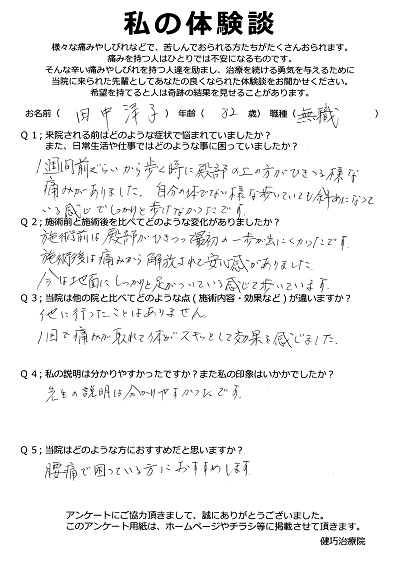 私の体験談
様々な痛みやしびれなどで、苦しんでおられる方たちがたくさんおられます。
痛みを持つ人はひとりでは不安になるものです。
そんな辛い痛みやしびれを持つ人達を励まし、治療を続ける勇気を与えるために
当院に来られた先輩としてあなたの良くなられた体験談をお聞かせください。
希望を持てると人は奇跡の結果を見せることがあります。
お名前（ 田中 洋子 ）年齢（ 82 歳）職種（ 無職 ）
Q1；来院される前はどのような症状で悩まれていましたか？
また、日常生活や仕事ではどのような事に困っていましたか？
1週間前ぐらいから歩く時に殿部の上の方がひきつる様な
痛みがありました。自分の体でない様な歩いていても斜めになって
いる感じでしっかりと歩けなかったです。
Q2；施術前と施術後を比べてどのような変化がありましたか？
施術前は殿部がひきつって最初の一歩が出にくかったです。
施術後は痛みから解放されて安心感がありました。
今は地面にしっかりと足がついている感じで歩いています。
Q3；当院は他の院と比べてどのような点(施術内容・効果など)が違いますか？
他に行ったことはありません。
1回で痛みが取れて体がスキッとして効果を感じました。
Q4；私の説明は分かりやすかったですか？また私の印象はいかかでしたか？
先生の説明は分かりやすかったです。
Q5；当院はどのような方におすすめだと思いますか？
腰痛で困っている方におすすめします
アンケートにご協力頂きまして、誠にありがとうございました。
このアンケート用紙は、ホームページやチラシ等に掲載させて頂きます。
健巧治療院